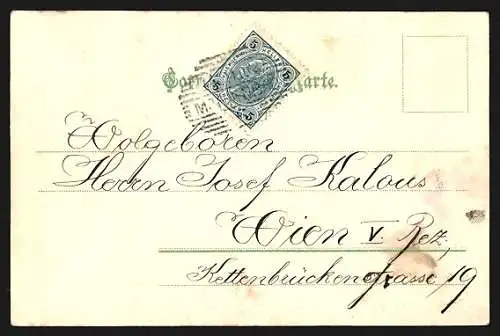 Corr arte.
5 5 5 5
M.
Wolgeboren
Herrn Josef Kalous
Wien V. Rez,
Kettenbrückengasse 19